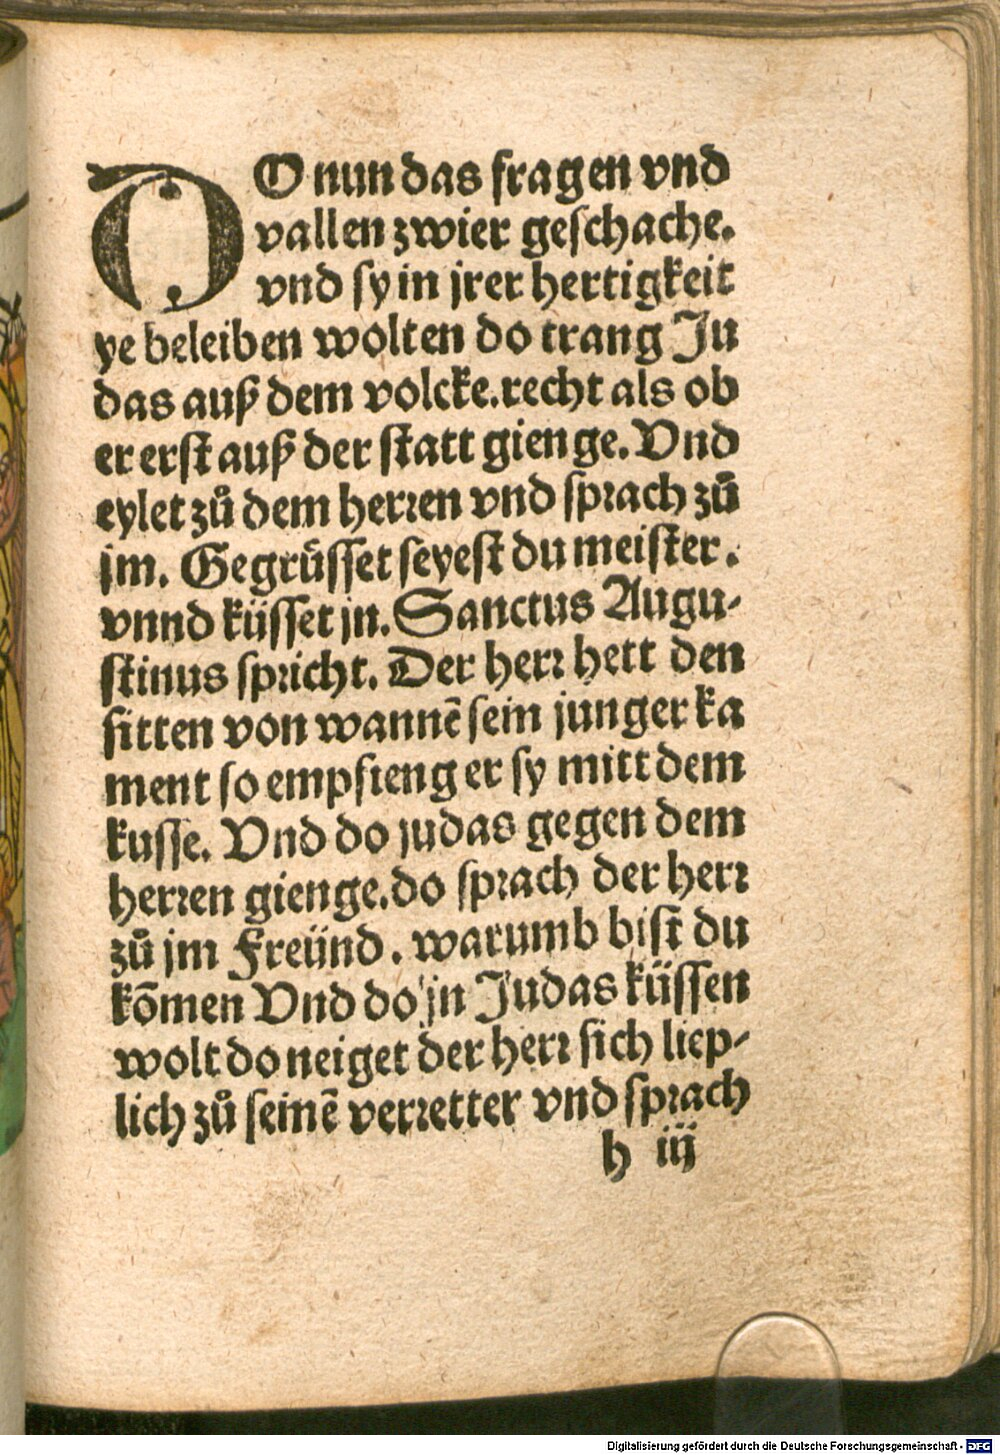 DO nun das fragen vnd
vallen zwier geschache.
vnd sy in jrer hertigkeit
ye beleiben wolten do trang Ju
das auß dem volcke. recht als ob
er erst auß der statt gienge. Vnd
eylet zů dem herren vnd sprach zů
jm. Gegrüsset seyest du meister.
vnnd küsset jn. Sanctus Augu-
stinus spricht. Der herr hett den
sitten von wannē sein junger ka
ment so empfieng er sy mitt dem
kusse. Vnd do judas gegen dem
herren gienge. do sprach der herr
zů jm Freünd. warumb bist du
kōmen Vnd do jn Judas küssen
wolt do neiget der herr sich liep-
lich zů seinē verretter vnd sprach
h iij
Digitalisierung gefördert durch die Deutsche Forschungsgemeinschaft - DFG